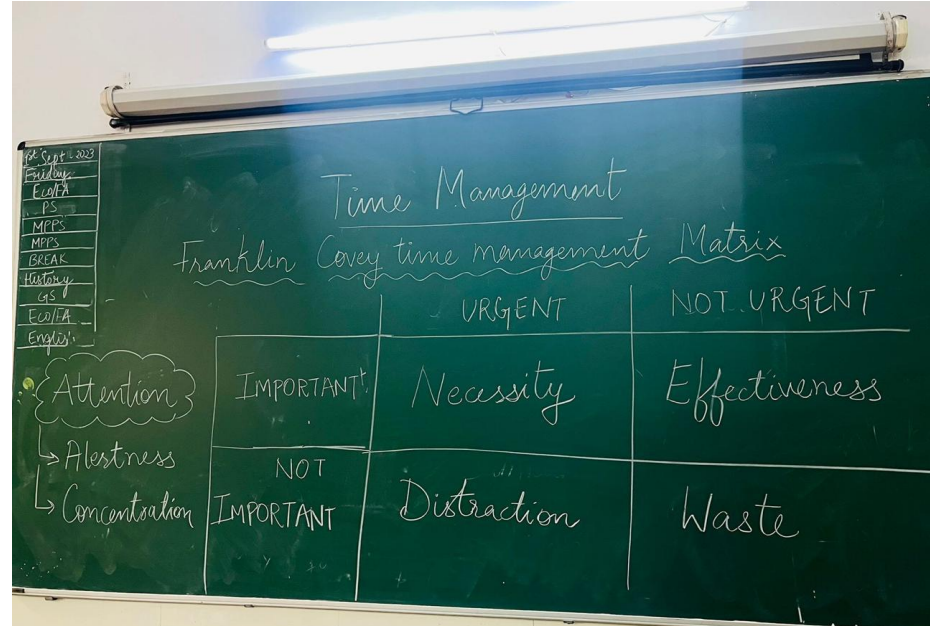 1st Sept 2023
Friday
Eco/FA
PS
MPPs
MPPs
BREAK
History
GS
Eco/FA
English
Time Management
Franklin Covey time management Matrix
URGENT NOT URGENT
IMPORTANT Necessity Effectiveness
NOT
IMPORTANT Distraction Waste
Attention
Alertness
Concentration